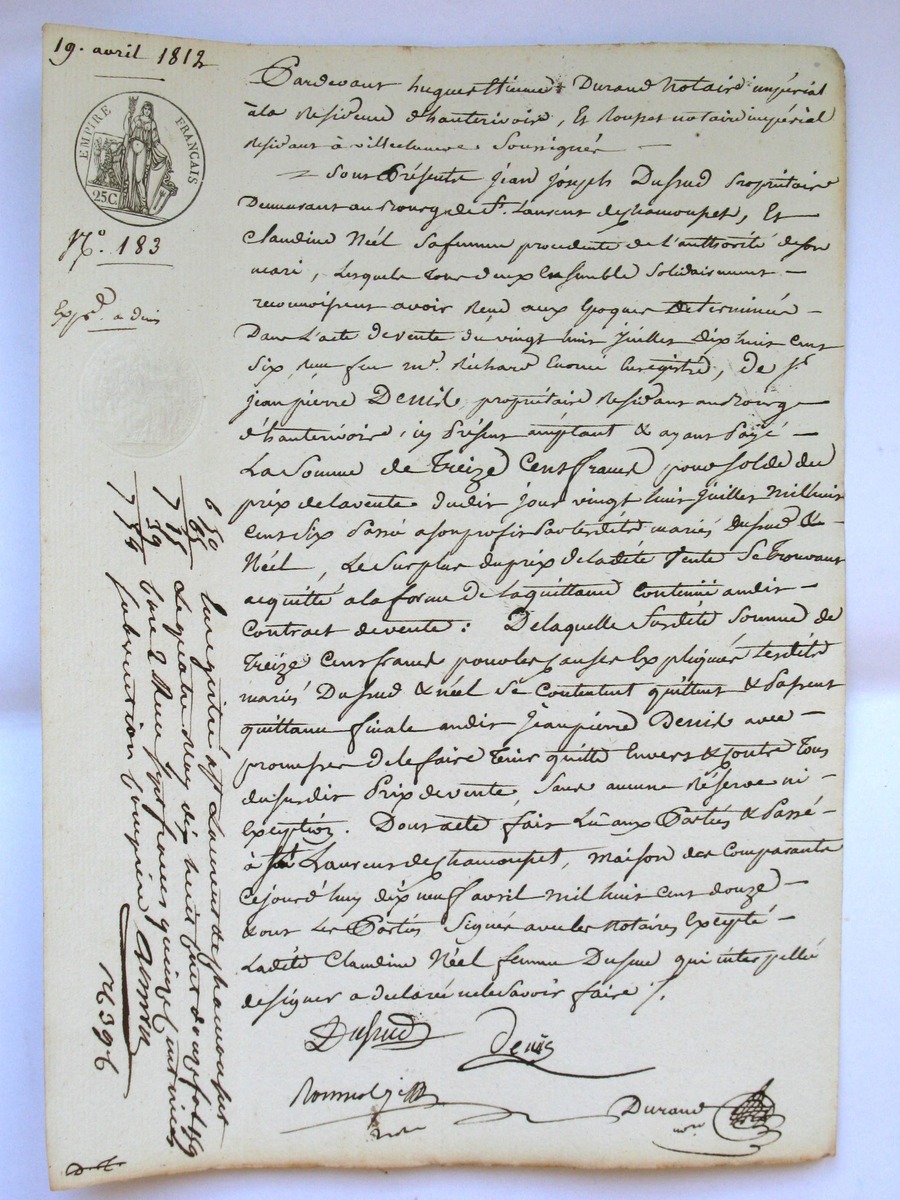 19. avril 1812
EMPIRE FRANÇAIS
25C.
N.º 183
Pardevant hugues Etienne Durand Notaire impérial
à la Residence d'hauterivoire, Et notaire impérial
Residant à villechenève Soussignés
Sont Présents Jean Joseph Dussud Propriétaire
Demeurant au Bourg de St. Laurent de chamousset, Et
Claudine Néel Sa femme procedente de l'authorité de son
mari, Lesquels tous deux Ensemble Solidairement
reconnoissent avoir Reçu aux Epoques Determinés
Dans L'acte de vente du vingt huit Juillet Dix huit cent
Six Reçu feu me. Richard Enregistré, De Sr.
jean pierre Denis propriétaire Residant au Bourg
d'hauterivoire, ici Présent acceptant & ayant Payé
La Somme de Treize Cent francs pour Solde du
prix de la vente dudit jour vingt huit Juillet Mil huit
Cent Six Passé a son profit Par lesdits mariés Dussud &
Néel, Le Surplus du prix de ladite Vente Se trouvant
acquitté a la forme de la quittance Contenue audit
Contract de vente : De laquelle Susdite Somme de
Treize Cent francs pour les Causes Expliqués Lesdits
mariés Dussud & néel Se Contentent quittent & Passent
quittance finale audit Jean pierre Denis avec
promesse de le faire Tenir quitte Envers & Contre Tous
du susdit Prix de vente, Sans aucune Réserve ni
Exception. Dont acte fait Lû aux Parties & Passé
à St Laurent de chamousset, maison des Comparants
Cejourd'huy dix neuf avril mil huit cent douze
& ont Les Parties Signés avec les notaires Excepté
Ladite Claudine Néel femme Dussud qui interpellée
de signer a declaré ne le Savoir faire /.
Dussud
Denis
Durand
nore
Enregistré à St Laurent de chamousset
Le quatre May dix huit cent douze fol 69
Case 2 Reçu Sept francs quinze centimes
Subvention comprise
6 50
65
7 15
39
7 54